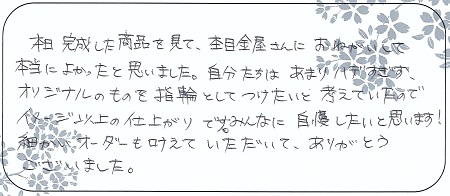 本日完成した商品を見て、杢目金屋さんにおねがいして
本当によかったと思いました。自分たちはあまりハデすぎず、
オリジナルのものを指輪としてつけたいと考えていたので
イメージ以上の仕上がりでみんなに自慢したいと思います!
細かいオーダーも叶えていただいて、ありがとう
ございました。